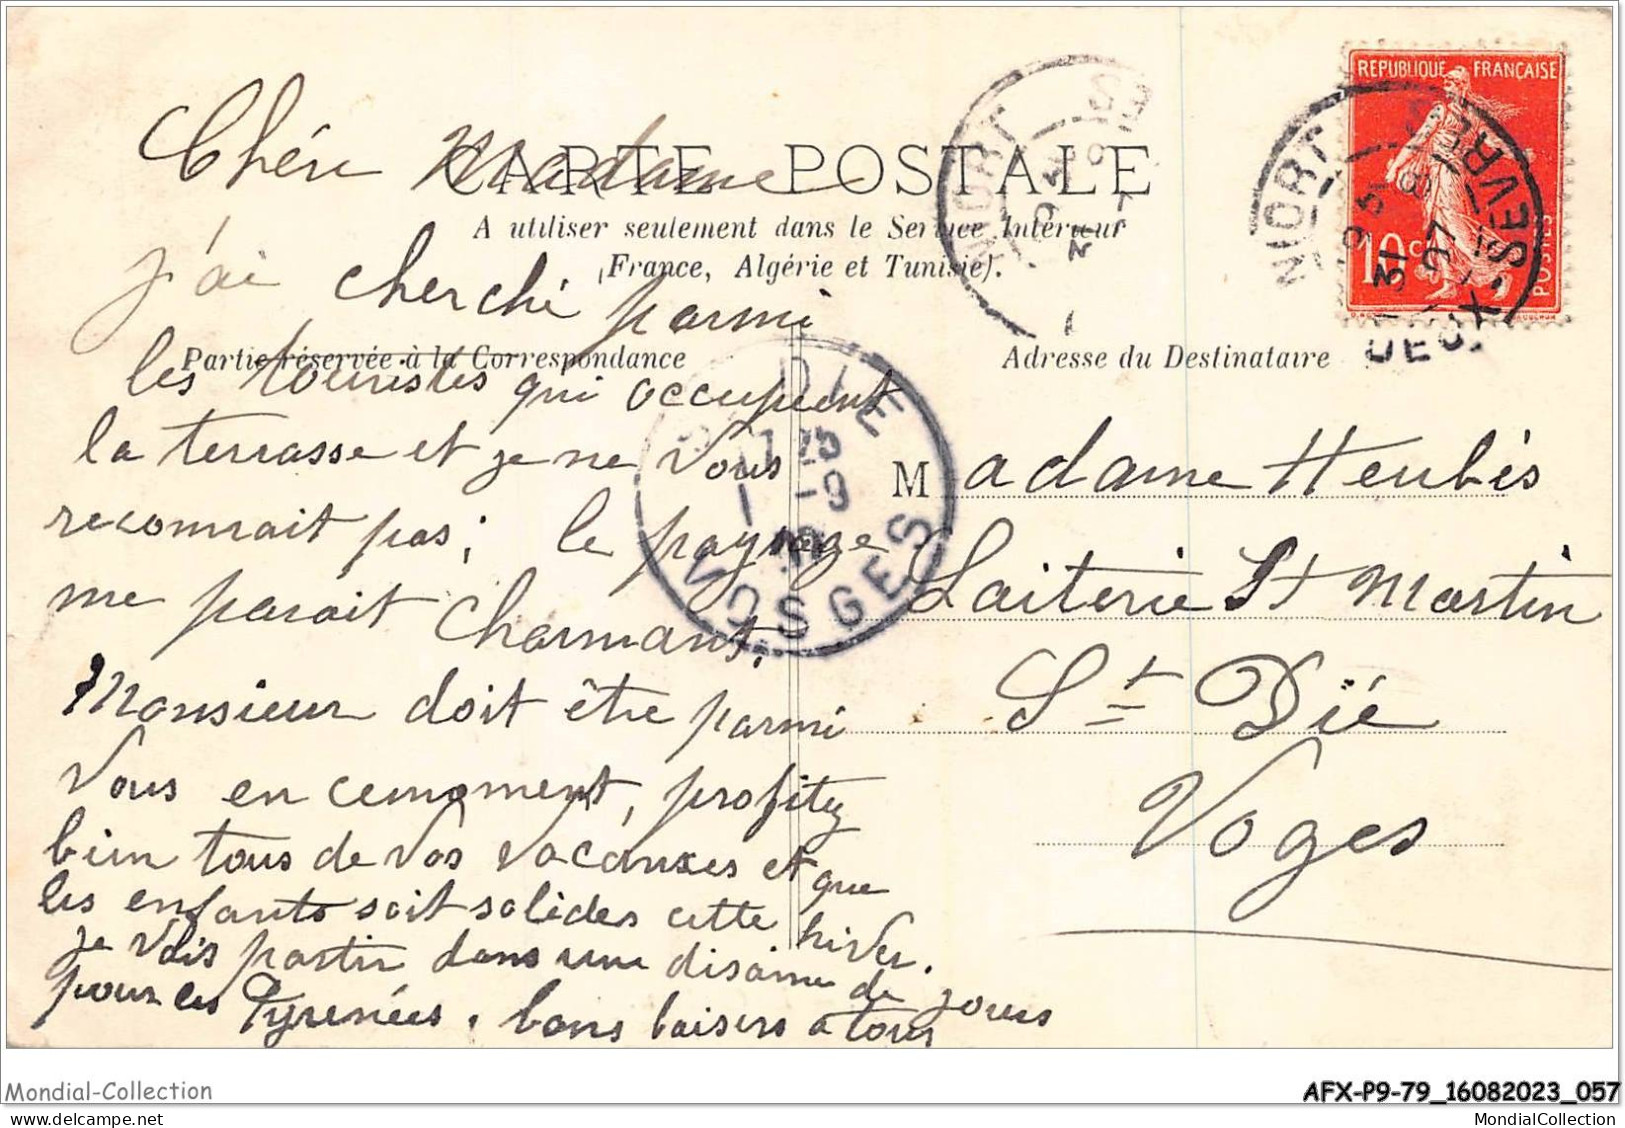 CARTE POSTALE
A utiliser seulement dans le Service Intérieur
(France, Algérie et Tunisie).
Partie réservée à la Correspondance
Adresse du Destinataire
REPUBLIQUE FRANÇAISE
10c
POSTES
NIORT
DEUX-SEVRES
31
NIORT
VRES
DIE
VOSGES
Chére Madame
j'ai cherché parmi
les touristes qui occupent
la terrasse et je ne vous
reconnait pas; le paysage
me parait charmant.
Monsieur doit être parmi
vous en cemoment, profitez
bien tous de vos vacances et que
les enfants soit solides cette hiver.
je vais partir dans une disaine de jours
pour les Pyrenées. bons baisers a tous
Madame Heubès
Laiterie St Martin
St Dié
Voges
Mondial-Collection
AFX-P9-79_16082023_057
MondialCollection